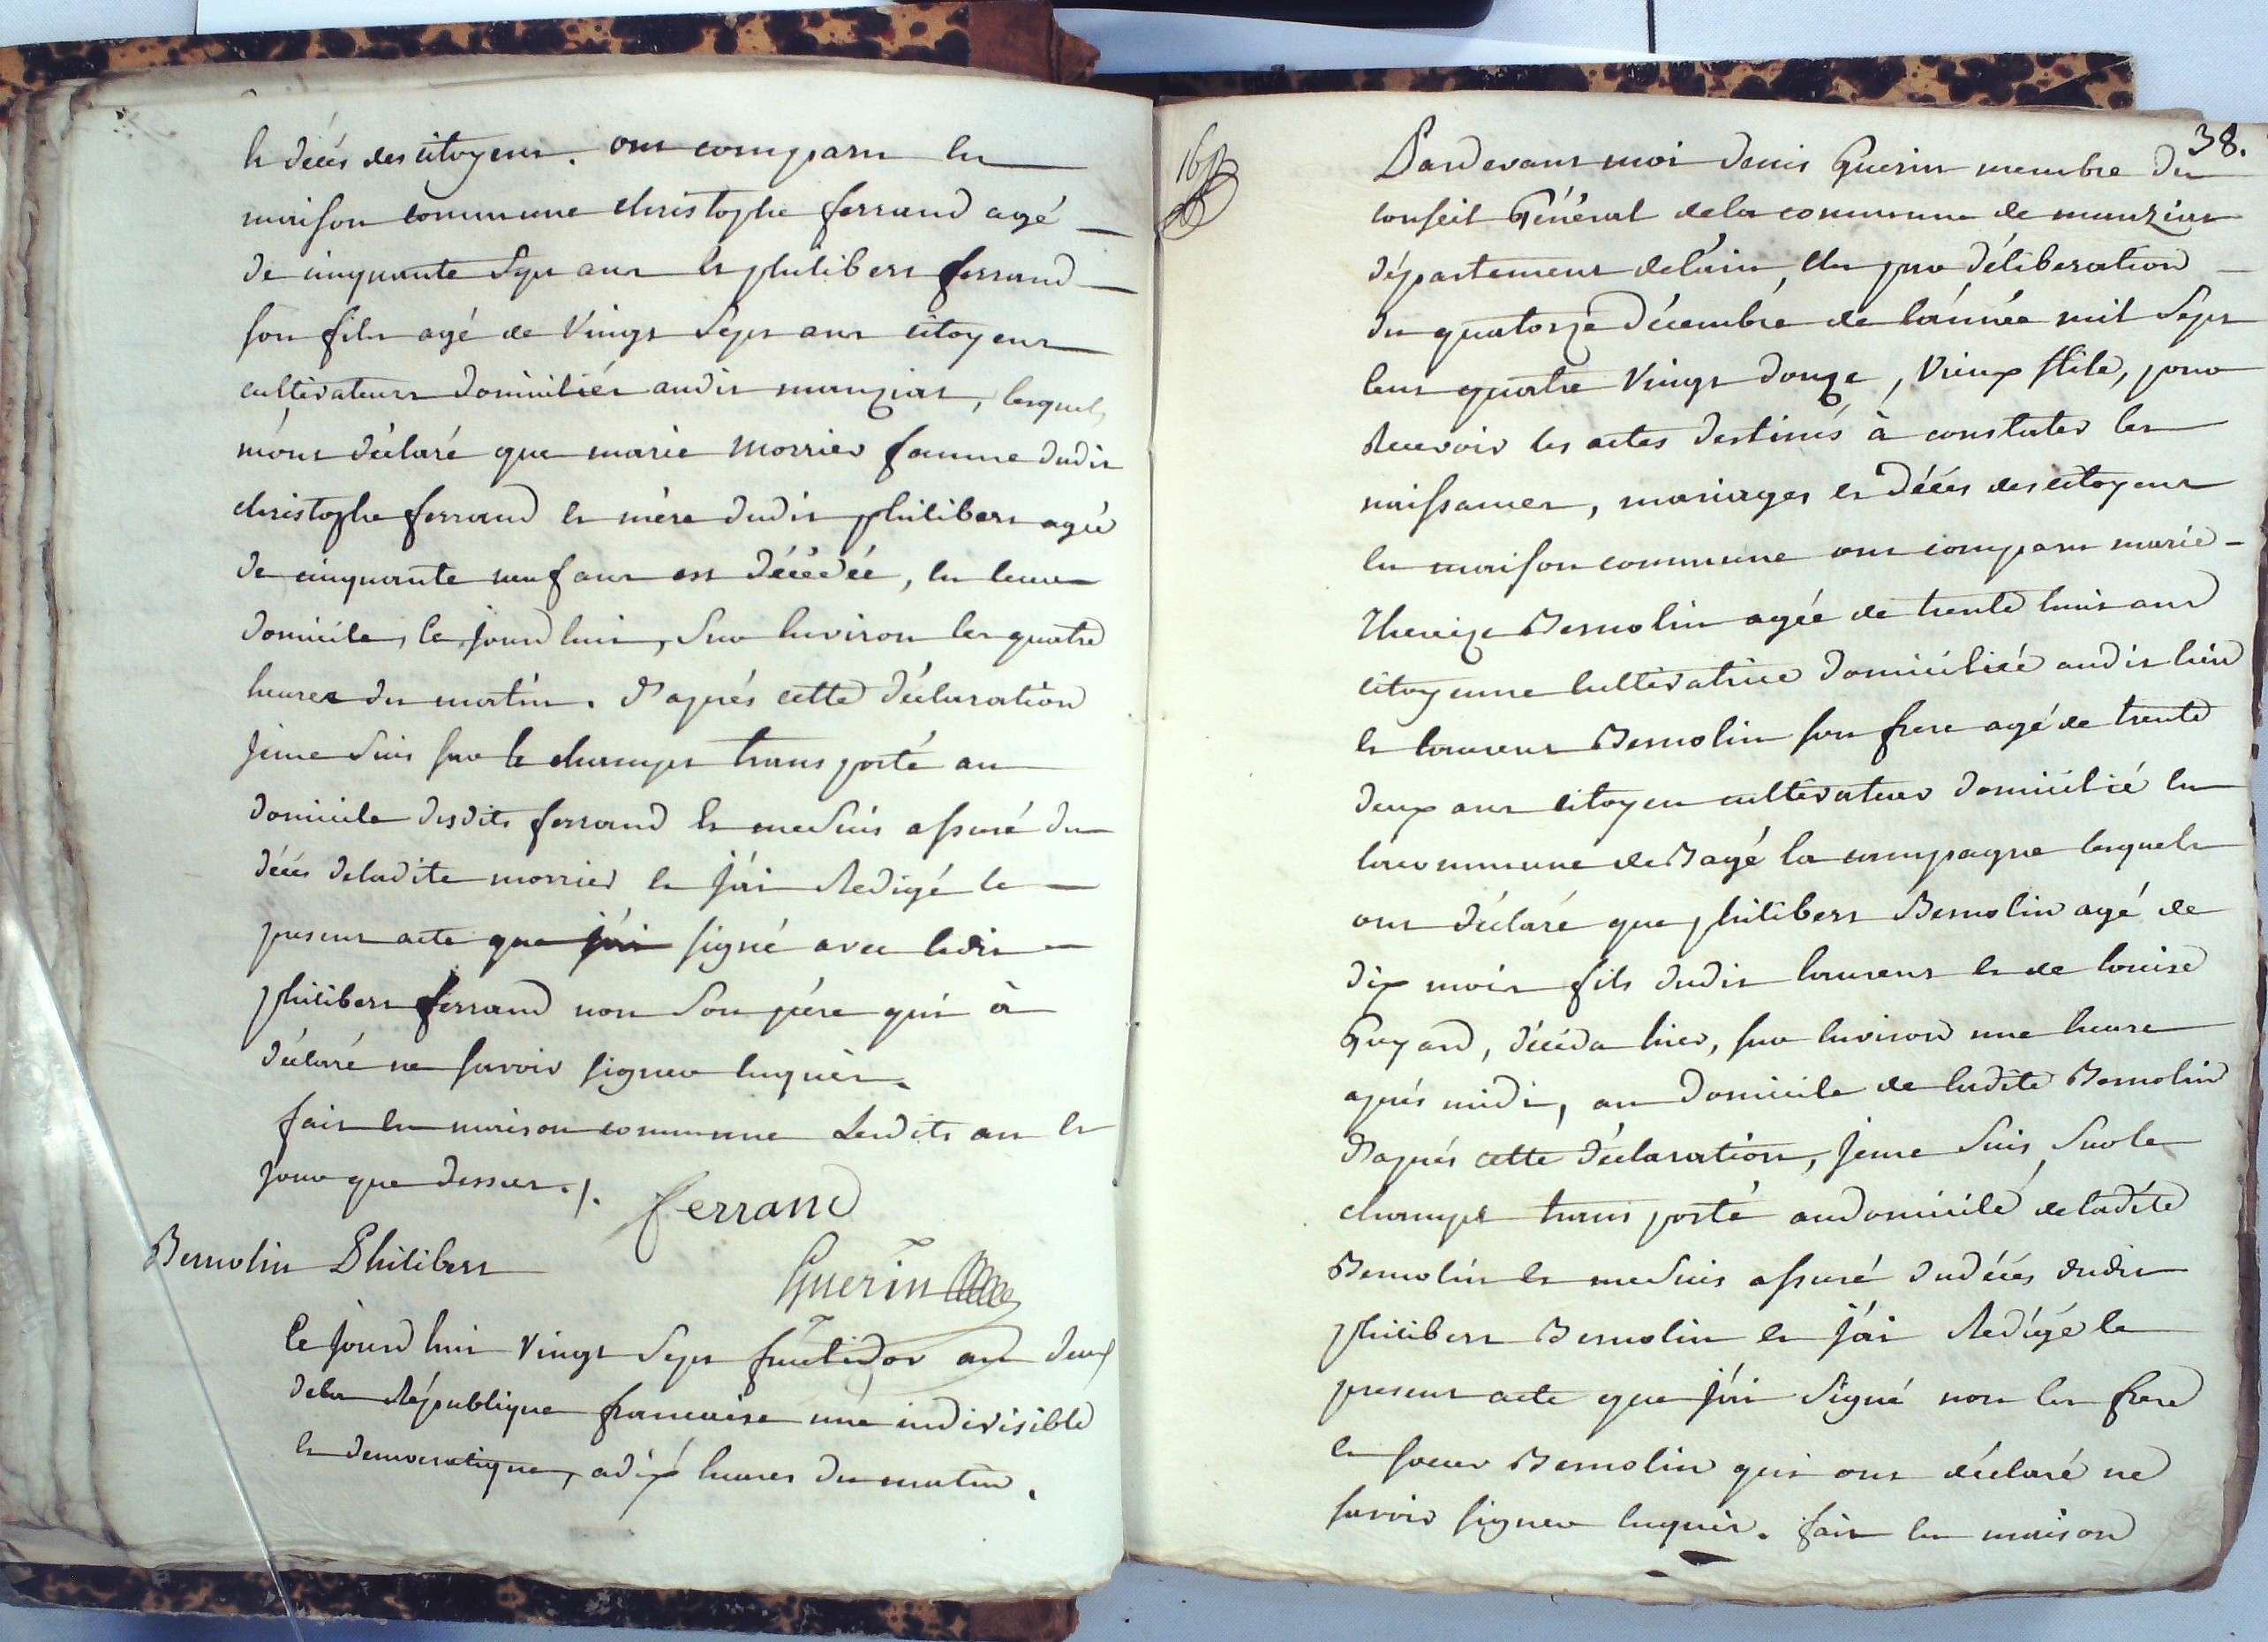 et décés des citoyens. ont comparu en
maison commune christophe ferrand agé
de cinquante sept ans et philibert ferrand
son fils agé de vingt sept ans citoyens
cultivateurs domiciliés audit manziat, lesquels
m'ont déclaré que marie Morrier famme dudit
christophe ferrand et mére dudit philibert agée
de cinquante neuf ans est décédée, en leur
domicile, ce jourd huit, sur lenviron les quatre
heures du matin. D'aprés cette déclaration
je me suis sur le champt transporté au
domicile desdits ferrand et me suis assuré du
décés de ladite morrier et j'ái Redigé le
present acte que j'ái signé avec ledit
philibert ferrand non son pére qui à
déclaré ne savoir signer enquis.
fait en maison commune Lesdits an et
jour que dessus./.
ferrand
Guerin
Bernolin Philibert
Ce jourd hui vingt sept fructidor an deux
de la République francaise une indivisible
et democratique, a dix heures du matin.
38.
Pardevant moi denis Guerin membre du
conseil Général de la commune de manziat
département de l'ain, élu par déliberation
du quatorze décembre de l'année mil sept
cent quatre vingt douze, vieux stile, pour
Recevoir les actes destinés à constater les
naissances, mariages et décés des citoyens
en maison commune ont comparu marie
Thereize Bernolin agée de trente huit ans
citoyenne cultivatrice domiciliée audit lieu
et laurent Bernolin son frere agé de trente
deux ans citoyen cultivateur domicilié en
la commune de Bagé la campagne lesquels
ont déclaré que philibert Bernolin agé de
dix mois fils dudit laurent et de louise
Guyard, décéda hier, sur lenviron une heure
aprés midi, au domicile de ladite Bernolin
D'aprés cette déclaration, je me suis sur le
champt transporté au domicile de ladite
Bernolin et me suis assuré du décés dudit
philibert Bernolin et j'ái Redigé le
present acte que j'ái signé non les frere
et soeur Bernolin qui ont déclaré ne
savoir signer enquis. fait en maison